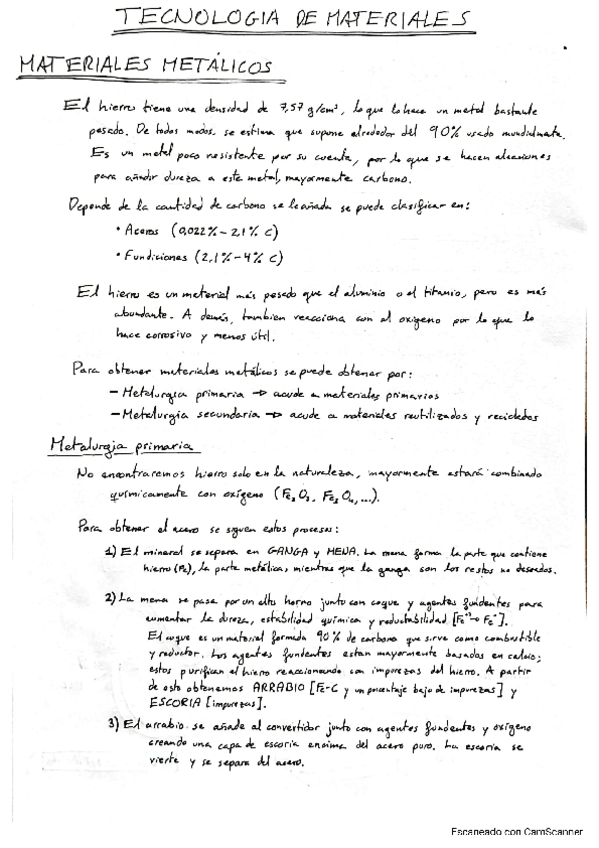 TECNOLOGIA DE MATERIALES
MATERIALES METÁLICOS
El hierro tiene una densidad de 7,57 g/cm³, lo que lo hace un metal bastante
pesado. De todos modos, se estima que supone alrededor del 90% usado mundialmente.
Es un metal poco resistente por su cuenta, por lo que se hacen aleaciones
para añadir dureza a este metal, mayormente carbono.
Depende de la cantidad de carbono se le añada se puede clasificar en:
• Aceros (0,022% - 2,1% C)
• Fundiciones (2,1% - 4% C)
El hierro es un material más pesado que el aluminio o el titanio, pero es más
abundante. A demás, tambien reacciona con el oxigeno por lo que lo
hace corrosivo y menos útil.
Para obtener materiales metálicos se puede obtener por:
- Metalurgia primaria → acude a materiales primarios
- Metalurgia secundaria → acude a materiales reutilizados y reciclados
Metalurgia primaria
No encontraremos hierro solo en la naturaleza, mayormente estará combinado
químicamente con oxígeno (Fe₂O₃, Fe₃O₄,...).
Para obtener el acero se siguen estos procesos:
1) El mineral se separa en GANGA y MENA. La mena forma la parte que contiene
hierro (Fe), la parte metálica, mientras que la ganga son los restos no deseados.
2) La mena se pasa por un alto horno junto con coque y agentes fundentes para
aumentar la dureza, estabilidad química y reductabilidad
El coque es un material formada 90% de carbono que sirve como combustible
y reductor. Los agentes fundentes estan mayormente basados en calcio;
estos purifican el hierro reaccionando con impurezas del hierro. A partir
de esto obtenemos ARRABIO [Fe-C y un porcentaje bajo de impurezas] y
ESCORIA [impurezas].
3) El arrabio se añade al convertidor junto con agentes fundentes y oxígeno
creando una capa de escoria encima del acero puro. La escoria se
vierte y se separa del acero.
Escaneado con CamScanner